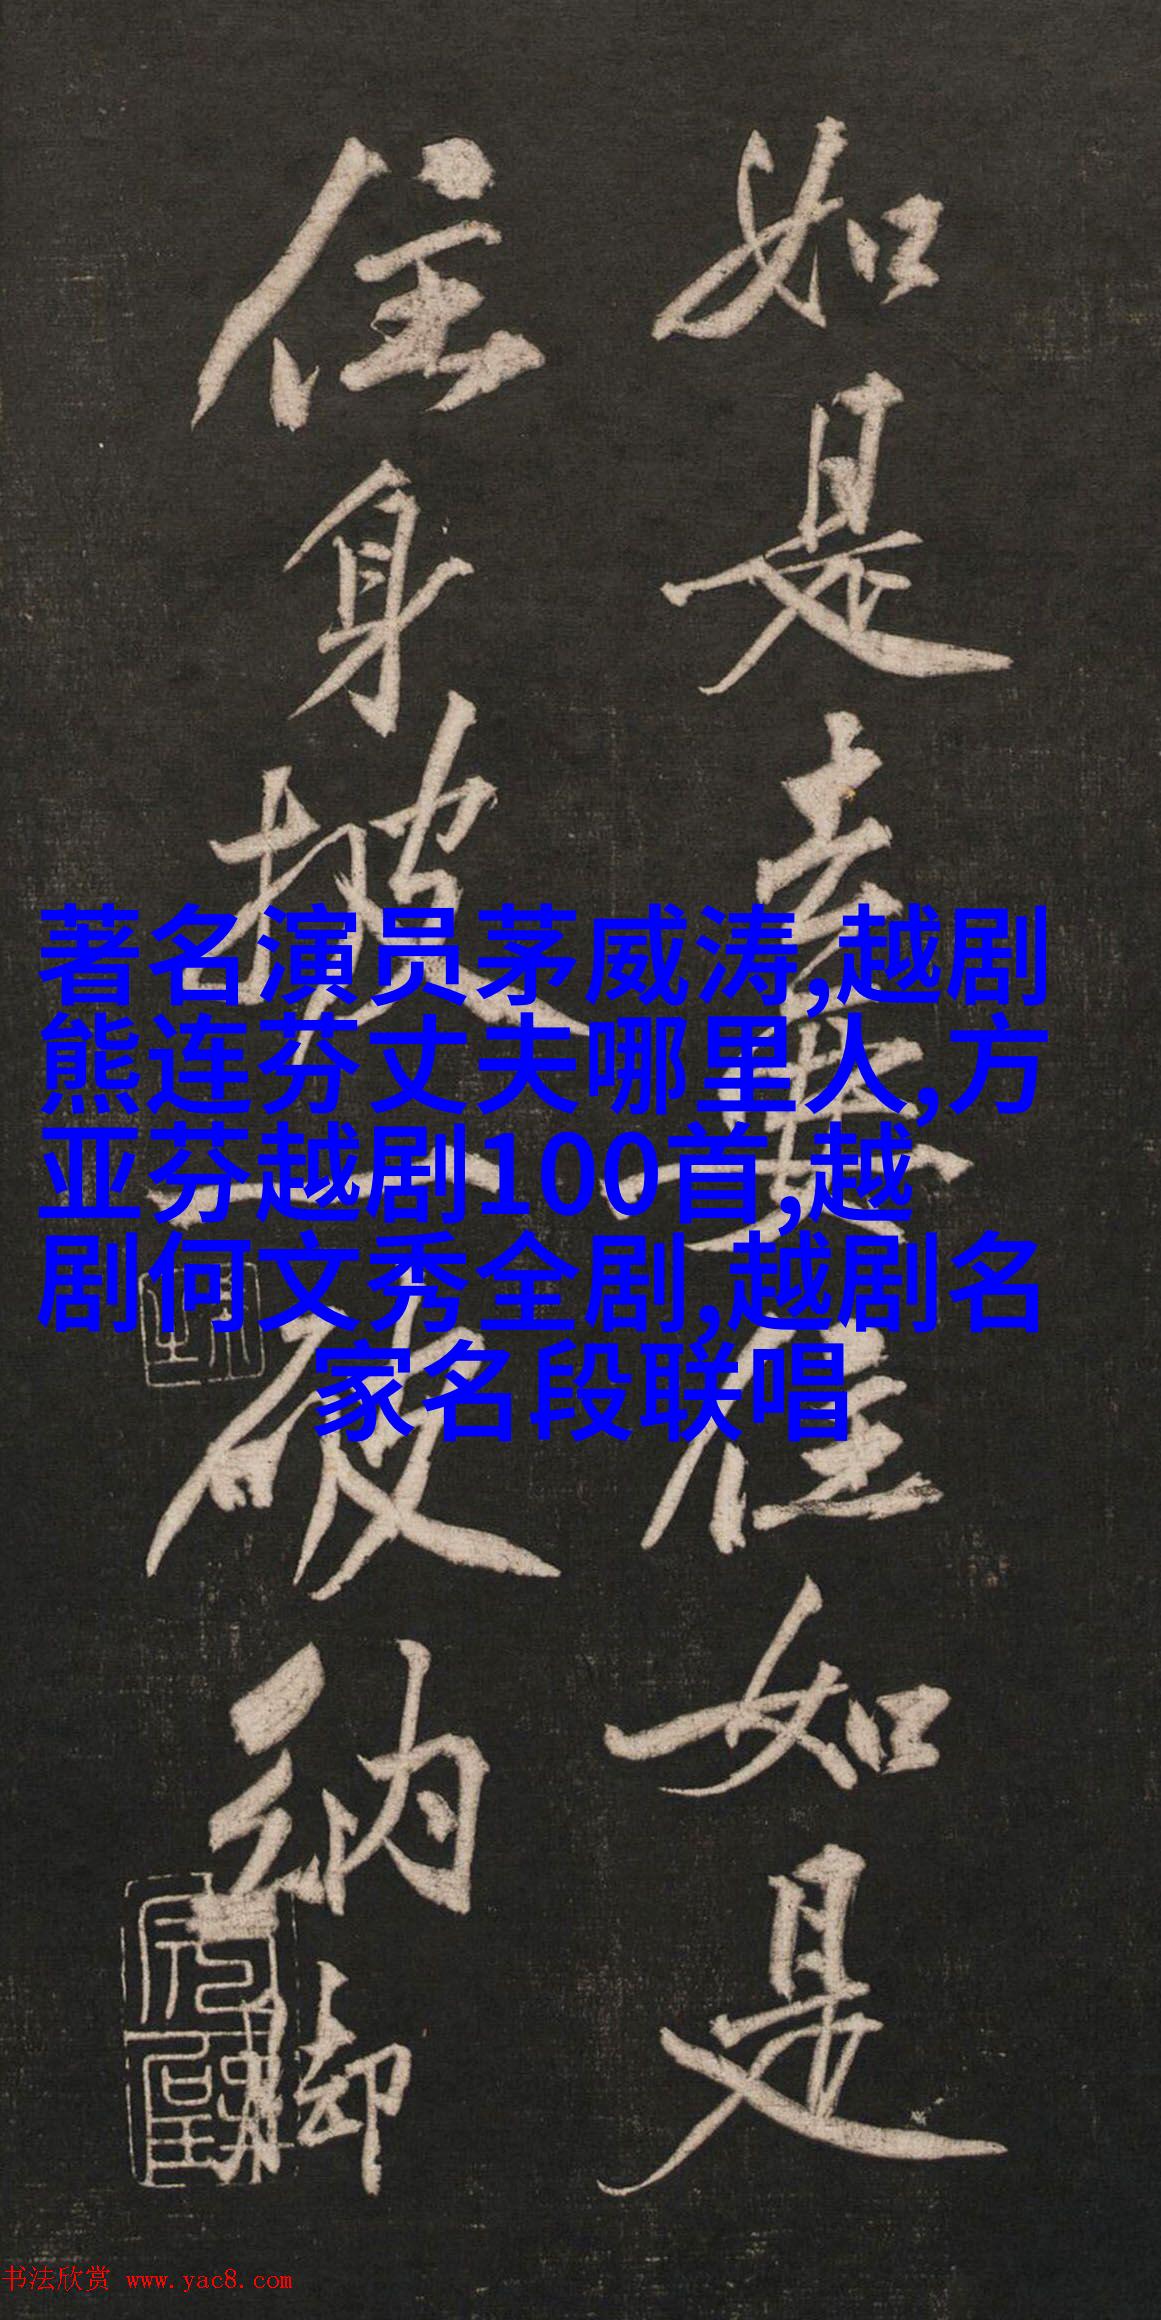 如是去與住如是
住身披一破衲脚
著名演员茅威涛,越剧
熊连芬丈夫哪里人,方
亚芬越剧100首,越
剧何文秀全剧,越剧名
家名段联唱
书法欣赏 www.yac8.com